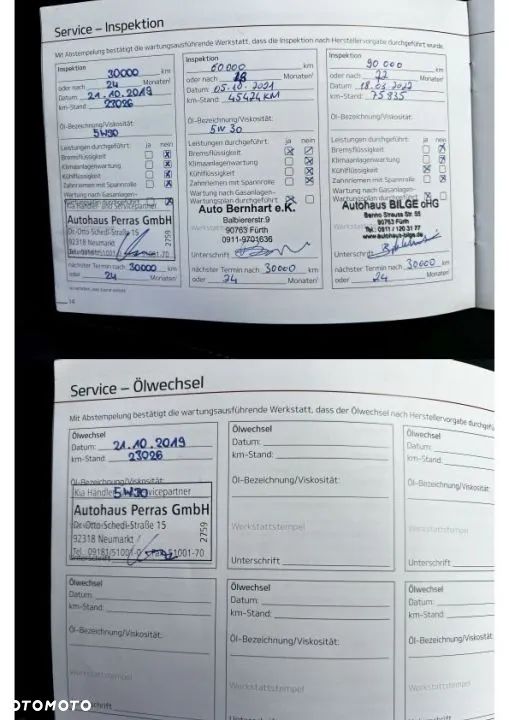 Service – Inspektion
Mit Abstempelung bestätigt die wartungsausführende Werkstatt, dass die Inspektion nach Herstellervorgabe durchgeführt wurde.
Inspektion
30000 km
oder nach 24 Monaten/
Datum: 21.10.2019
km-Stand: 23026
Öl-Bezeichnung/Viskosität:
5W30
Leistungen durchgeführt: ja nein
Bremsflüssigkeit
Klimaanlagenwartung
Kühlflüssigkeit
Zahnriemen mit Spannrolle
Wartung nach Gasanlagen-
Autohaus Perras GmbH
Dr.-Otto-Schedl-Straße 15
92318 Neumarkt
2759
nächster Termin nach 30000 km
oder 24 Monaten/
14
Inspektion
60000 km
oder nach 18 Monaten/
Datum: 05.10.2021
km-Stand: 45424 KM
Öl-Bezeichnung/Viskosität:
5W30
Leistungen durchgeführt: ja nein
Bremsflüssigkeit
Klimaanlagenwartung
Kühlflüssigkeit
Zahnriemen mit Spannrolle
Wartung nach Gasanlagen-
Wartungsplan durchgeführt
Auto Bernhart e.K.
Balbiererstr.9
90763 Fürth
0911-9701636
Unterschrift
nächster Termin nach 30000 km
oder 24 Monaten/
Inspektion
90000 km
oder nach Monaten/
Datum: 18.03.2022
km-Stand: 75935
Öl-Bezeichnung/Viskosität:
Leistungen durchgeführt: ja nein
Bremsflüssigkeit
Klimaanlagenwartung
Kühlflüssigkeit
Zahnriemen mit Spannrolle
Wartung nach Gasanlagen-
Autohaus BILGE oHG
Benno Strauss Str. 55
90763 Fürth
Tel.: 0911 / 120 31 77
www.autohaus-bilge.de
Unterschrift
nächster Termin nach 30000 km
oder 24 Monaten/
Service – Ölwechsel
Mit Abstempelung bestätigt die wartungsausführende Werkstatt, dass der Ölwechsel nach Herstellervorgabe durchgeführt
Ölwechsel
Datum: 21.10.2019
km-Stand: 23026
Öl-Bezeichnung/Viskosität:
5W30
Kia Händler und Servicepartner
Autohaus Perras GmbH
Dr.-Otto-Schedl-Straße 15
92318 Neumarkt
Tel.: 09181/51001-0 Fax: 51001-70
2759
Ölwechsel
Datum:
km-Stand:
Öl-Bezeichnung/Viskosität:
Werkstattstempel
Unterschrift
Ölwechsel
Datum:
km-Stand:
Öl-Bezeichnung/Viskosität:
Werkstattstempel
Unterschrift
Ölwechsel
Datum:
km-Stand:
Öl-Bezeichnung/Viskosität:
Werkstattstempel
Ölwechsel
Datum:
km-Stand:
Öl-Bezeichnung/Viskosität:
Werkstattstempel
Ölwechsel
Datum:
km-Stand:
Öl-Bezeichnung/Viskosität:
Werkstattstempel
OTOMOTO